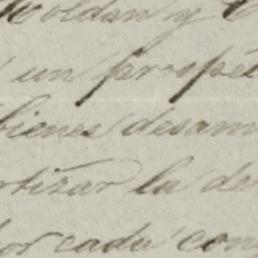 Roldan y
un prospe
bienes desam
rtizar la de
por cada con